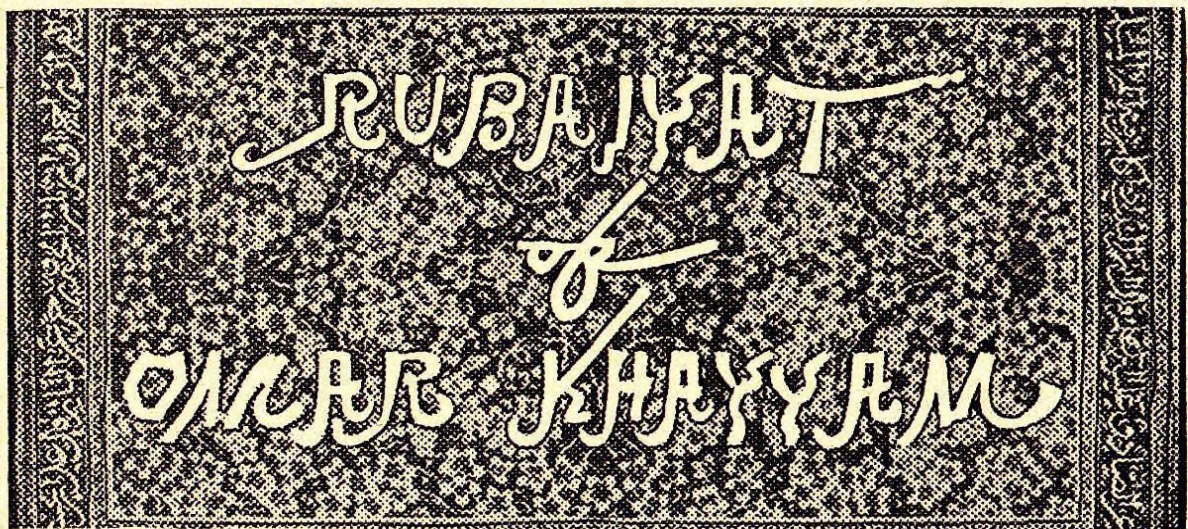 RUBAIYAT
of
OMAR KHAYYAM